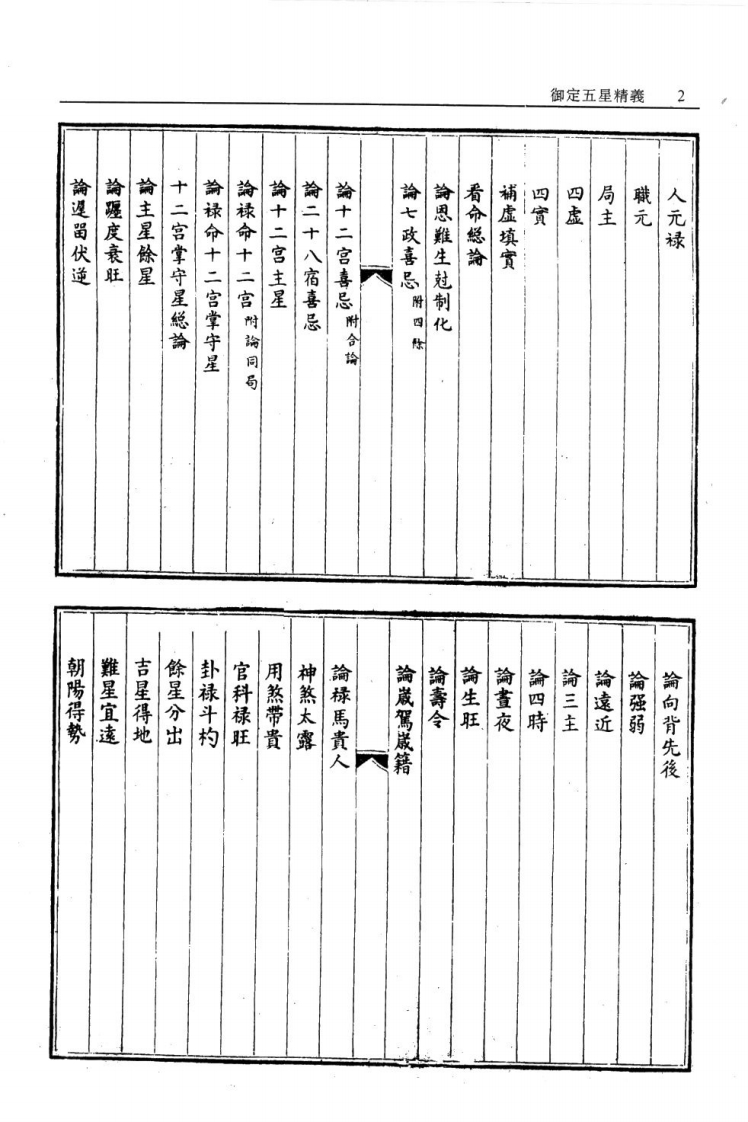 御定五星精義 2
人元祿
職元
局主
四虛
四實
補虛填實
看命総論
論恩難生尅制化
論七政喜忌 附四餘
論十二宮喜忌 附合論
論二十八宿喜忌
論十二宮主星
論祿命十二宮 附論同局
論祿命十二宮掌守星
十二宮掌守星総論
論主星餘星
論躔度衰旺
論遲留伏逆
論向背先後
論强弱
論遠近
論三主
論四時
論晝夜
論生旺
論壽令
論歲駕歲籍
論祿馬貴人
神煞太露
用煞帶貴
官科祿旺
卦祿斗杓
餘星分出
吉星得地
難星宜遠
朝陽得勢